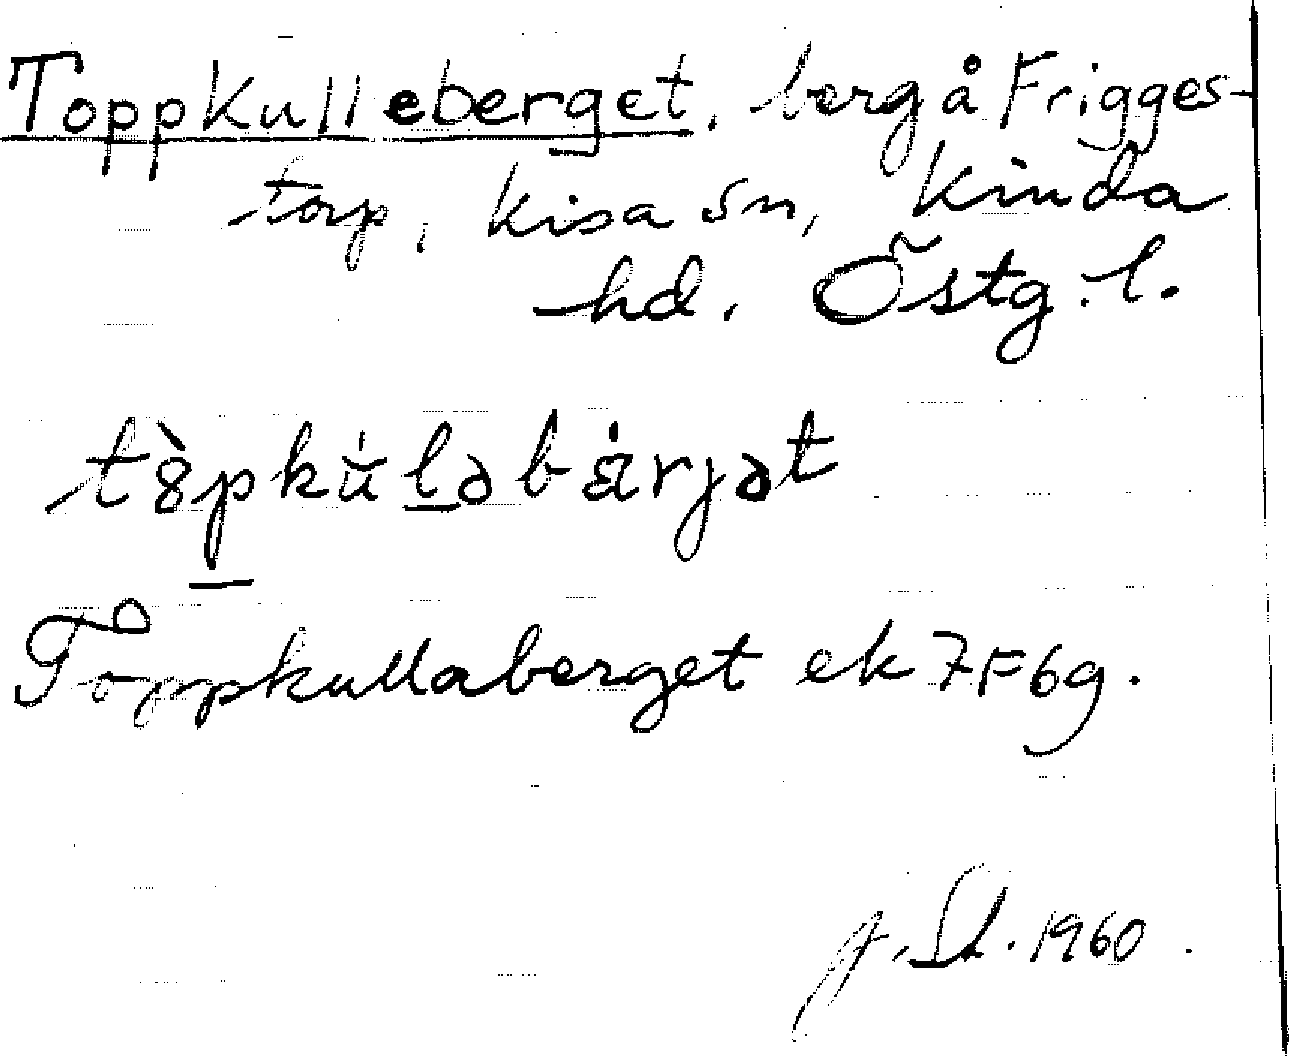 Toppkulleberget, berg å Frigges-
torp, Kisa sn, Kinda
hd. Östg. l.
Toppkullaberget ek 7F6g.
1960.